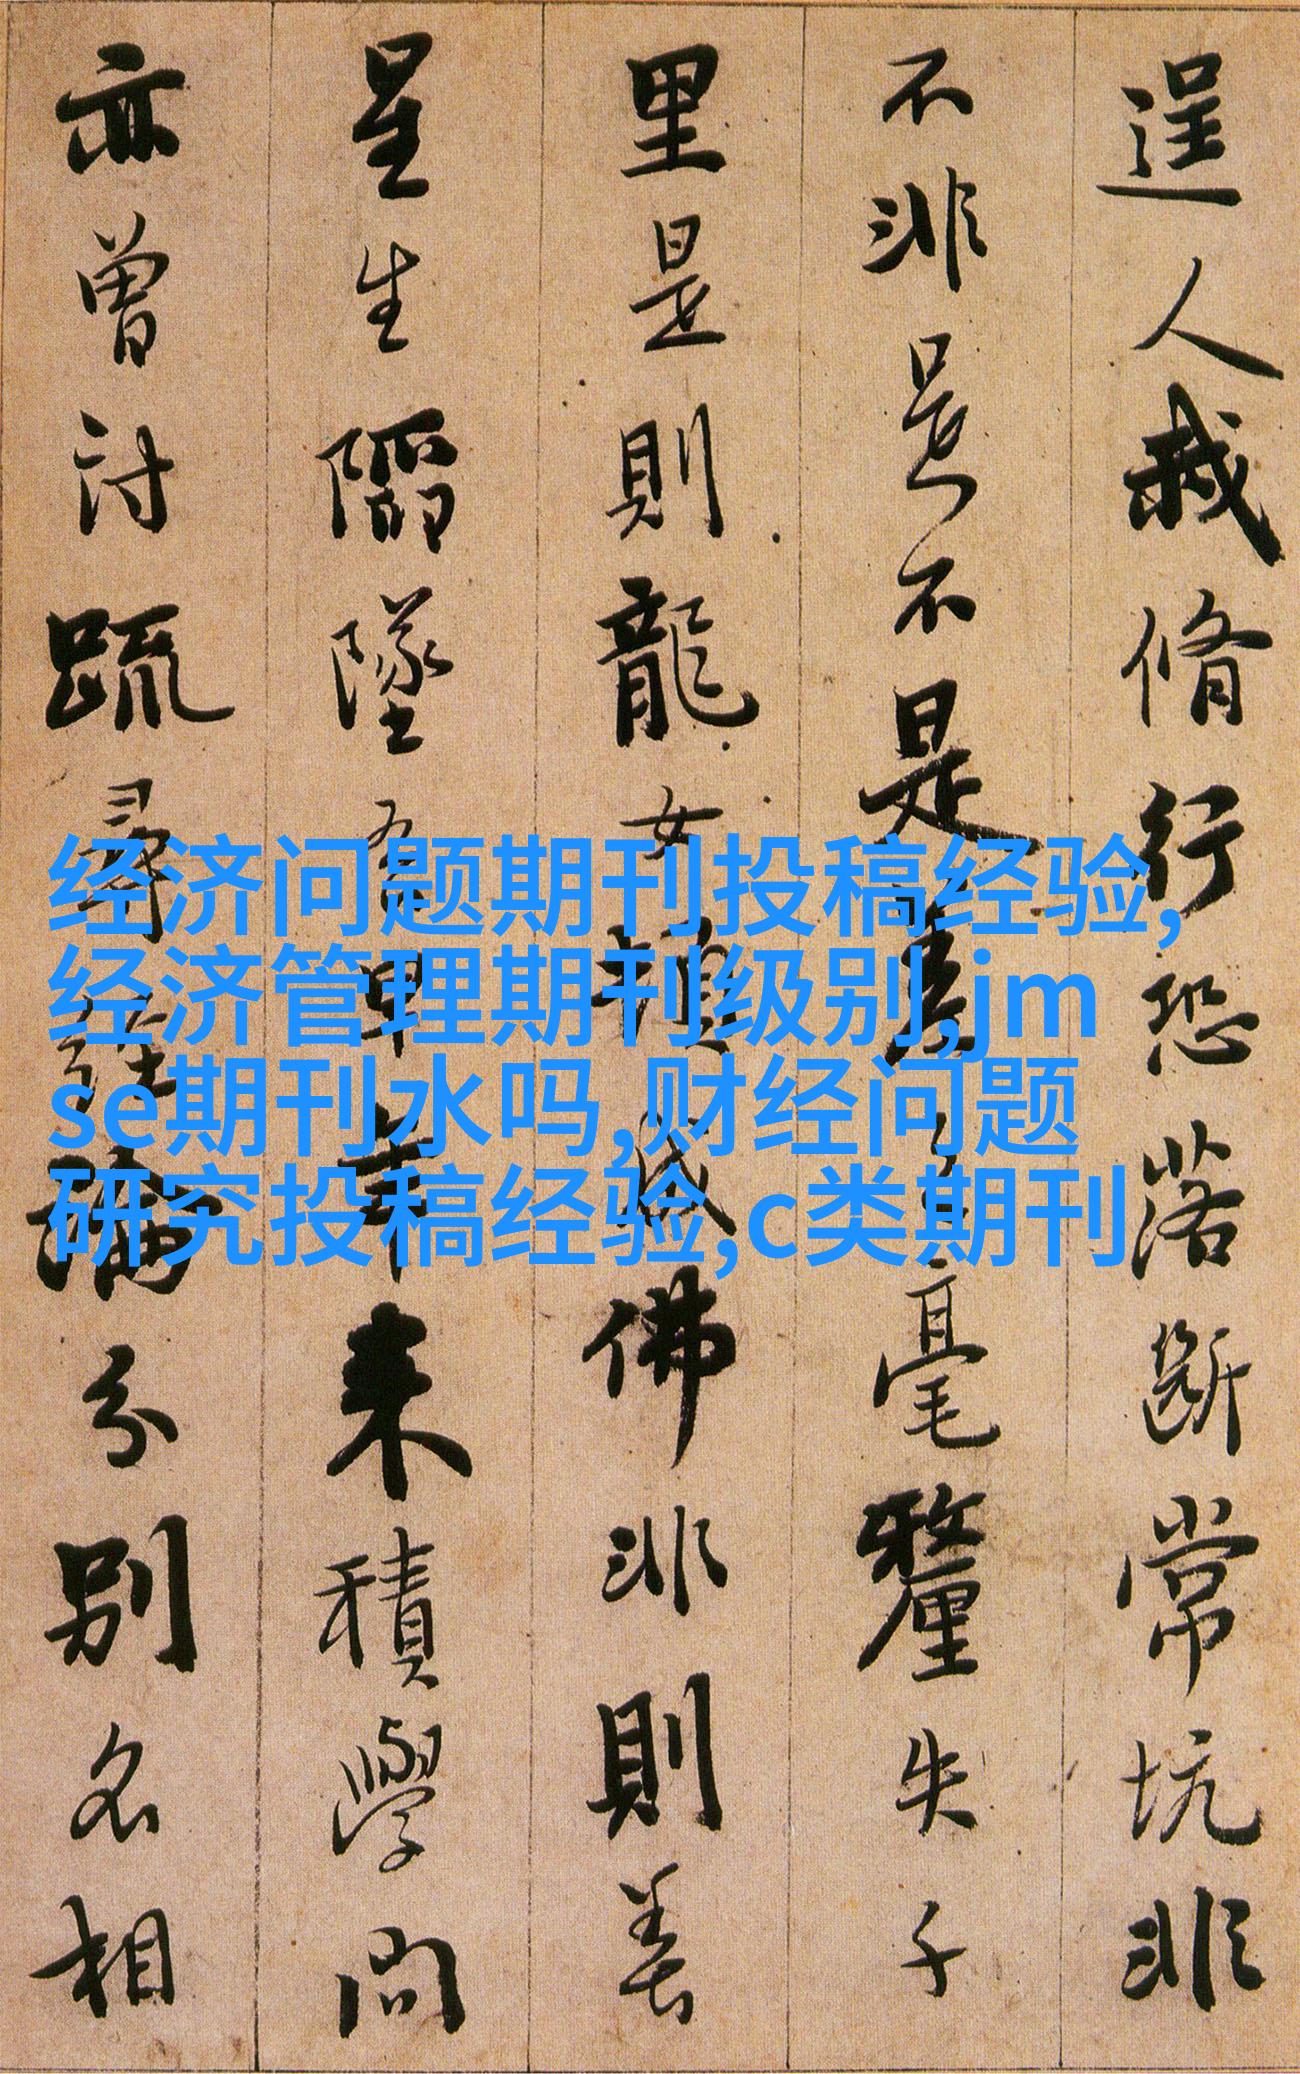 逞人我脩行恐落斷常坑非
不非是不是差之毫釐失千
里是則龍女頓成佛非則善
星生陷墜吾早年来積學問
亦曾討䟽尋經論分別名相
经济问题期刊投稿经验,
经济管理期刊级别,jm
se期刊水吗,财经问题
研究投稿经验,c类期刊